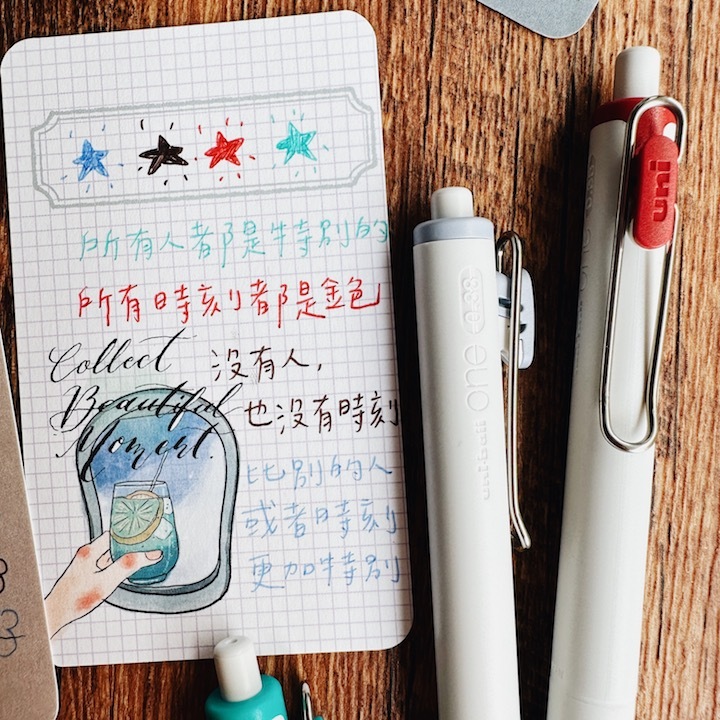 所有人都是特別的
所有時刻都是金色
Collect
Beautiful
Moment.
沒有人,
也沒有時刻
比別的人
或者時刻
更加特別
uni-ball one 0.38
uni